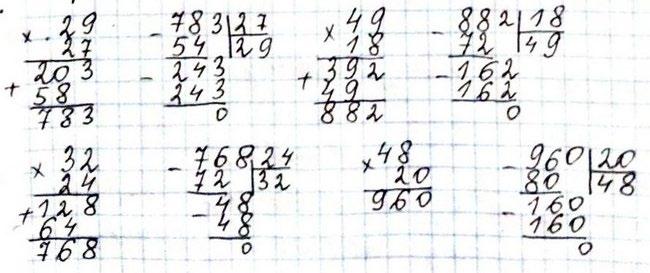 × 29 - 783 | 27 × 49 - 882 | 18
27 54 29 18 72 49
+ 203 - 243 + 392 - 162
58 243 49 162
783 0 882 0
× 32 - 768 | 24 × 48 - 960 | 20
24 72 32 20 80 48
+ 128 - 48 960 - 160
64 48 160
768 0 0